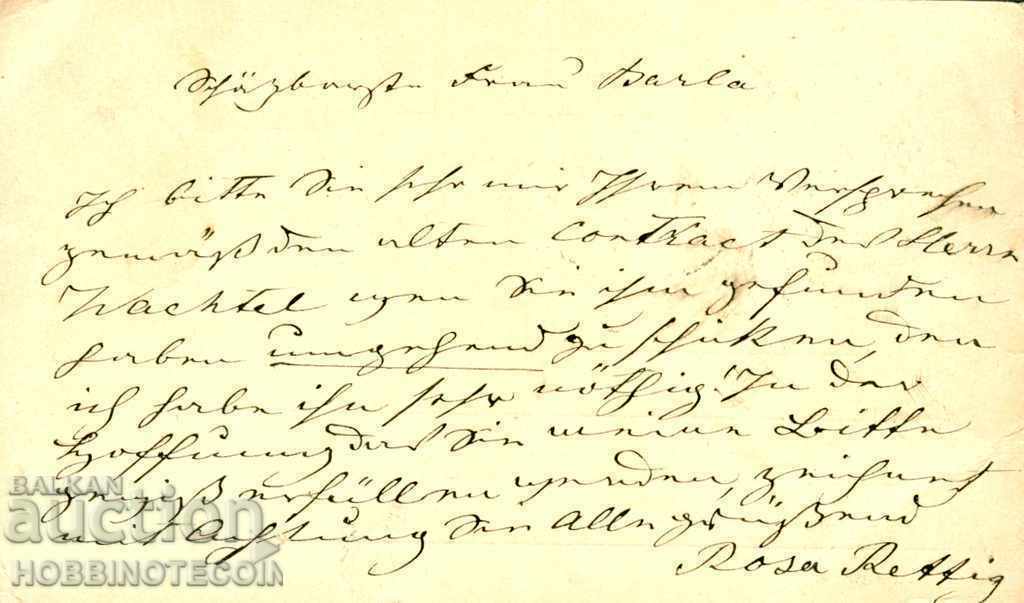 Schäzbarste Frau Barla
Ich bitte Sie sehr mir Ihrem Versprechen
gemäß den alten Contract des Herrn
Wachtel wen Sie ihn gefunden
haben umgehend zu schiken, den
ich habe ihn sehr nöthig! In der
Hoffnung das Sie meine Bitte
gewiß erfüllen werden, zeichnet
mit Achtung Sie Alle grüßend
Rosa Rettig
BALKAN
auction
HOBBINOTECOIN